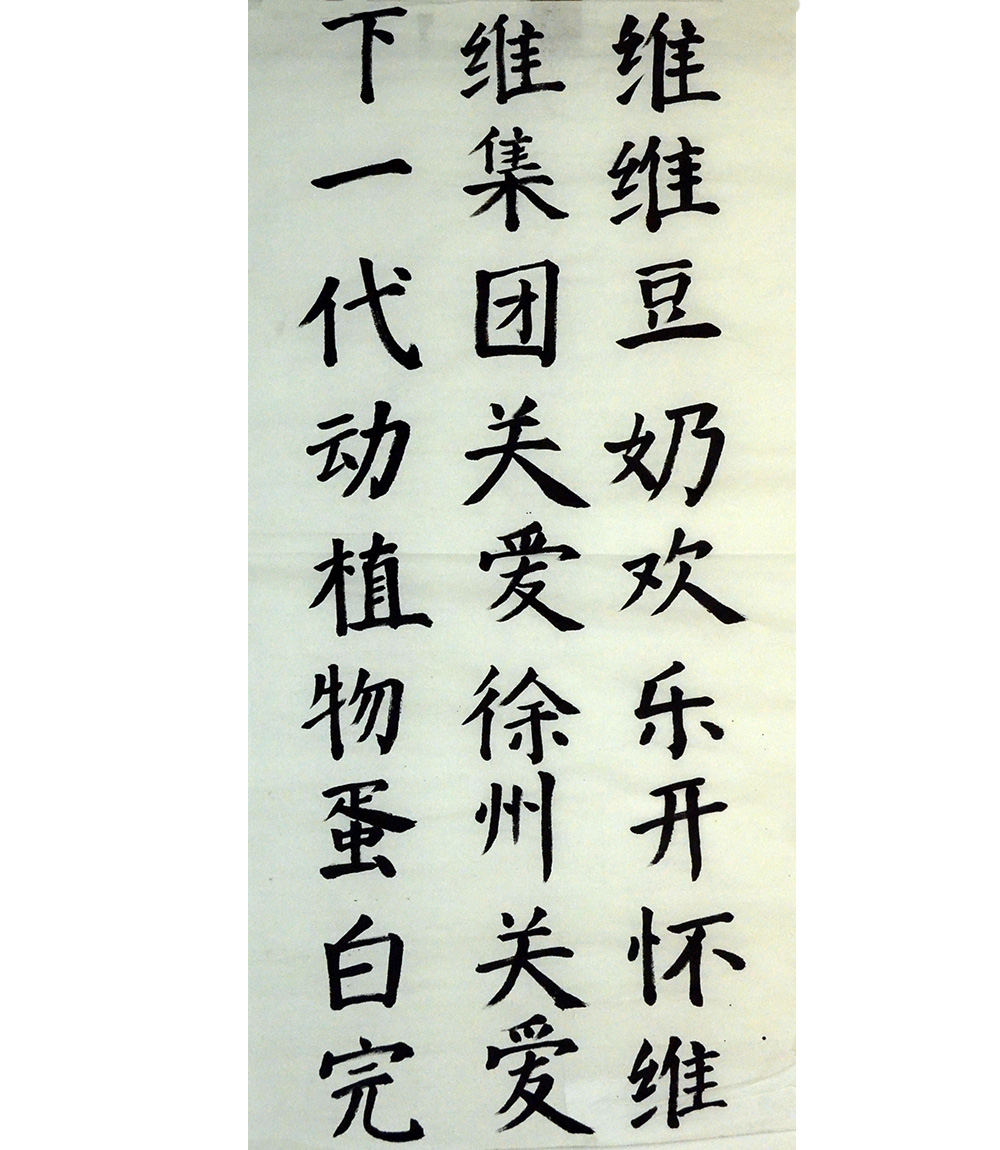 维维豆奶欢乐开怀维
维集团关爱徐州关爱
下一代动植物蛋白完